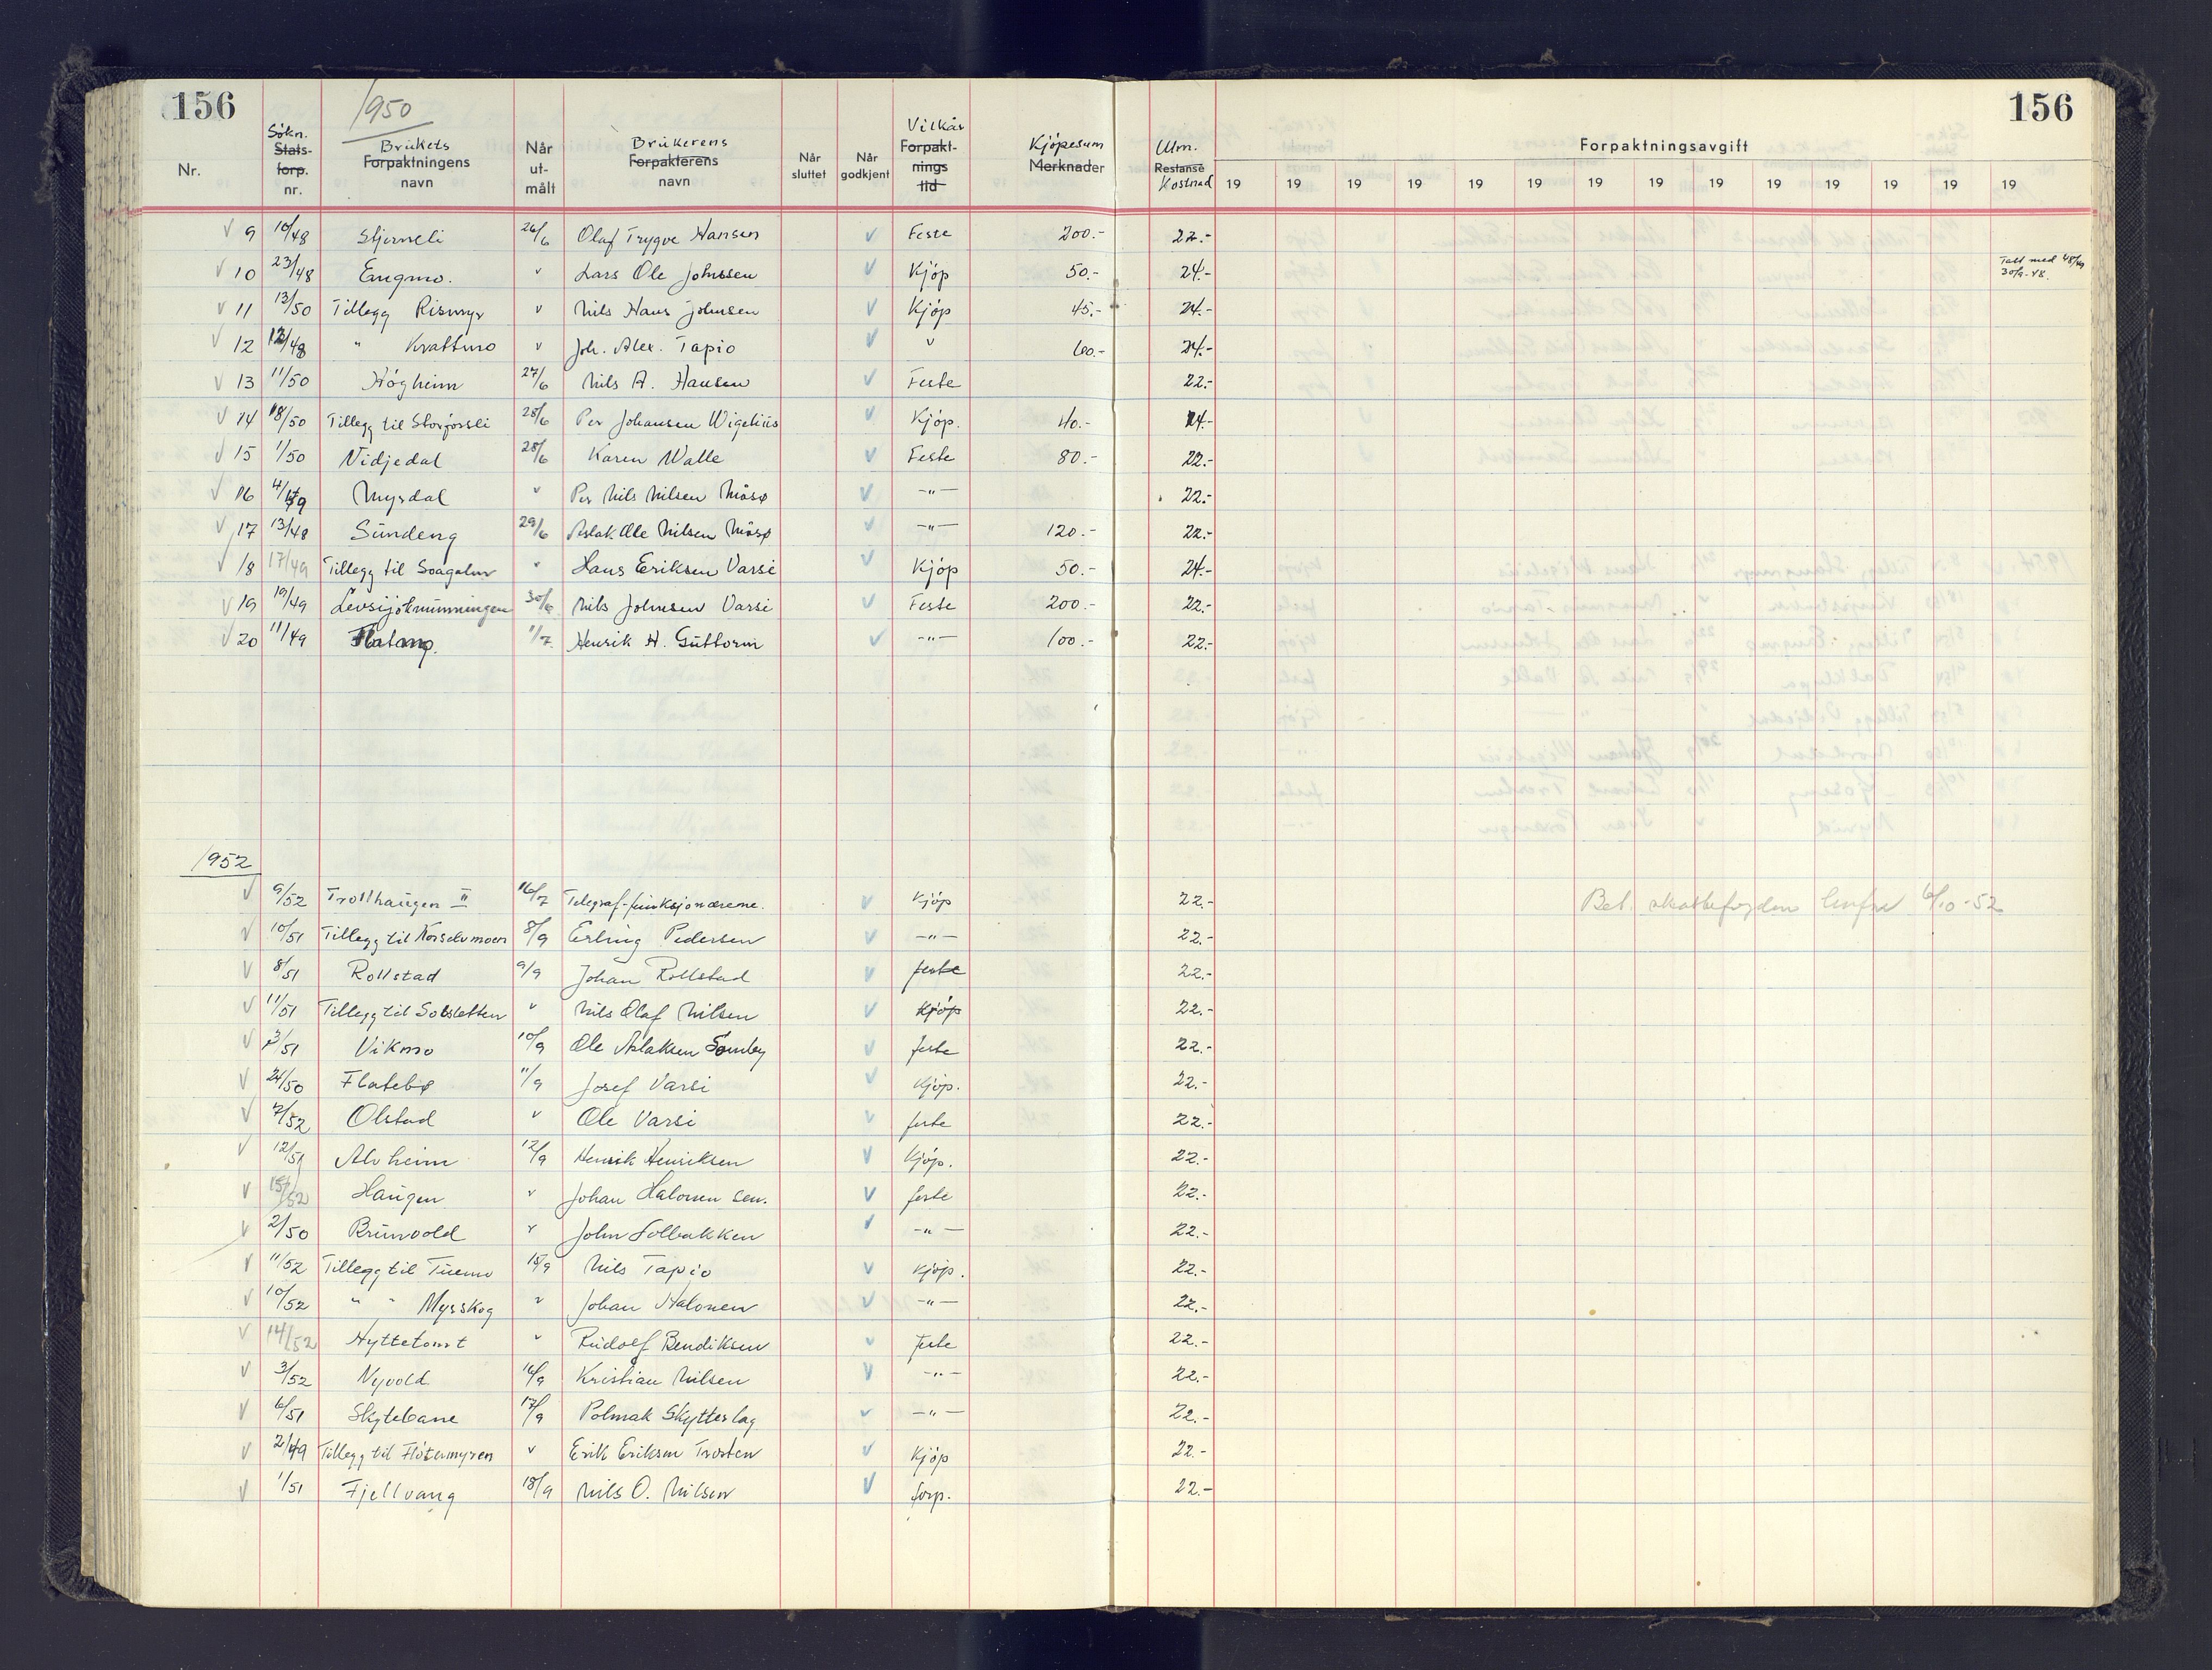 156 1950 156
Nr. Søkn. Stats-forp. nr. Brukets Forpaktningens navn Når ut-målt Brukerens Forpakterens navn Når sluttet Når godkjent Vilkår Forpakt-nings tid Kjöpesum Merknader Utm. Restanse Kostnad Forpaktningsavgift
19 19 19 19 19 19 19 19 19 19 19 19 19 19
√ 9 10/48 Stjerneli 26/6 Olaf Trygve Hansen √ Feste 200.- 22.-
√ 10 23/48 Engmo. " Lars Ole Johnsen √ Kjöp 50.- 24.- Tatt med 48/49 30/9-48.
√ 11 13/50 Tillegg Rismyr " Nils Hans Johnsen √ Kjöp 45.- 24.-
√ 12 12/48 " Krattmo " Joh. Alex. Tapio √ " 60.- 24.-
√ 13 11/50 Högheim 27/6 Nils A. Hansen √ Feste 22.-
√ 14 18/50 Tillegg til Storfossli 28/6 Per Johansen Wigelius √ Kjöp. 40.- 24.-
√ 15 1/50 Vidjedal 28/6 Karen Walle √ Feste 80.- 22.-
√ 16 4/49 Myrdal " Per Nils Nilsen Måsø √ -"- 22.-
√ 17 13/48 Sundeng 29/6 Aslak Ole Nilsen Måsø √ -"- 120.- 22.-
√ 18 17/49 Tillegg til Soagalur " Hans Eriksen Varsi √ Kjöp 50.- 24.-
√ 19 19/49 Levsijokmunningen 30/6 Nils Johnsen Varsi √ Feste 200.- 22.-
√ 20 11/49 Flatmo. 1/7 Henrik H. Guttorm √ -"- 100.- 22.-
1952
√ 9/52 Trollhaugen II 16/7 Telegraf-funksjonærene. √ Kjöp 22.- Bet. skattefogden 6/10-52
√ 10/51 Tillegg til Norselvmoen 8/9 Erling Pedersen √ -"- 22.-
√ 8/51 Rollstad 9/9 Johan Rollstad √ feste 22.-
√ 11/51 Tillegg til Solsletten " Nils Olaf Nilsen √ Kjöp 22.-
√ 3/51 Vikmo 10/9 Ole Aslaksen Somby √ feste 22.-
√ 24/50 Flatebø 11/9 Josef Varsi √ Kjöp. 22.-
√ 7/52 Olstad " Ole Varsi √ feste 22.-
√ 12/51 Alvheim 12/9 Henrik Henriksen √ Kjöp. 22.-
√ 15/52 Haugen " Johan Halonen sen. √ feste 22.-
√ 2/50 Brunvold " John Solbakken √ -"- 22.-
√ 11/52 Tillegg til Tuemo 15/9 Nils Tapio √ Kjöp. 22.-
√ 10/52 " " Myrskog " Johan Halonen √ -"- 22.-
√ 14/52 Hyttetomt " Rudolf Bendiksen √ feste 22.-
√ 3/52 Nyvold 16/9 Kristian Nilsen √ -"- 22.-
√ 6/51 Skytebane 17/9 Polmak Skytterlag √ -"- 22.-
√ 2/49 Tillegg til Flötermyren " Erik Eriksen Trosten √ Kjöp 22.-
√ 1/51 Fjellvang 18/9 Nils O. Nilsen √ forp. 22.-